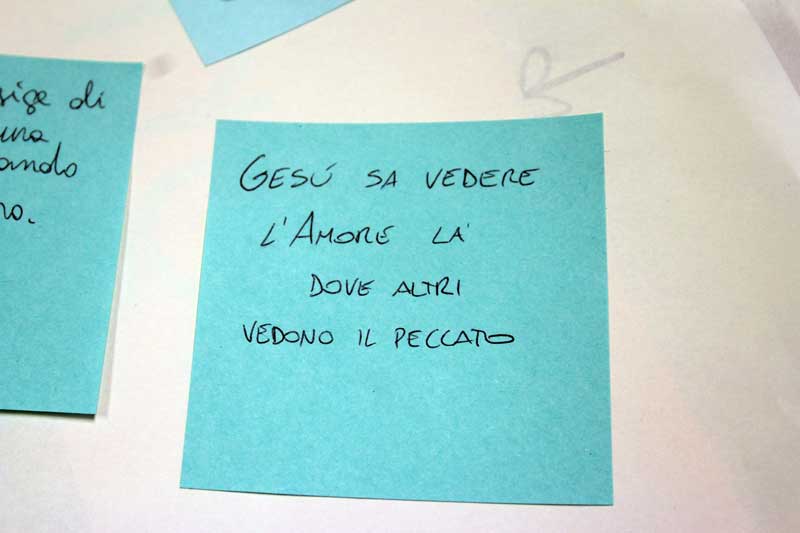 di
una
GESÚ SA VEDERE
L'AMORE LA'
DOVE ALTRI
VEDONO IL PECCATO